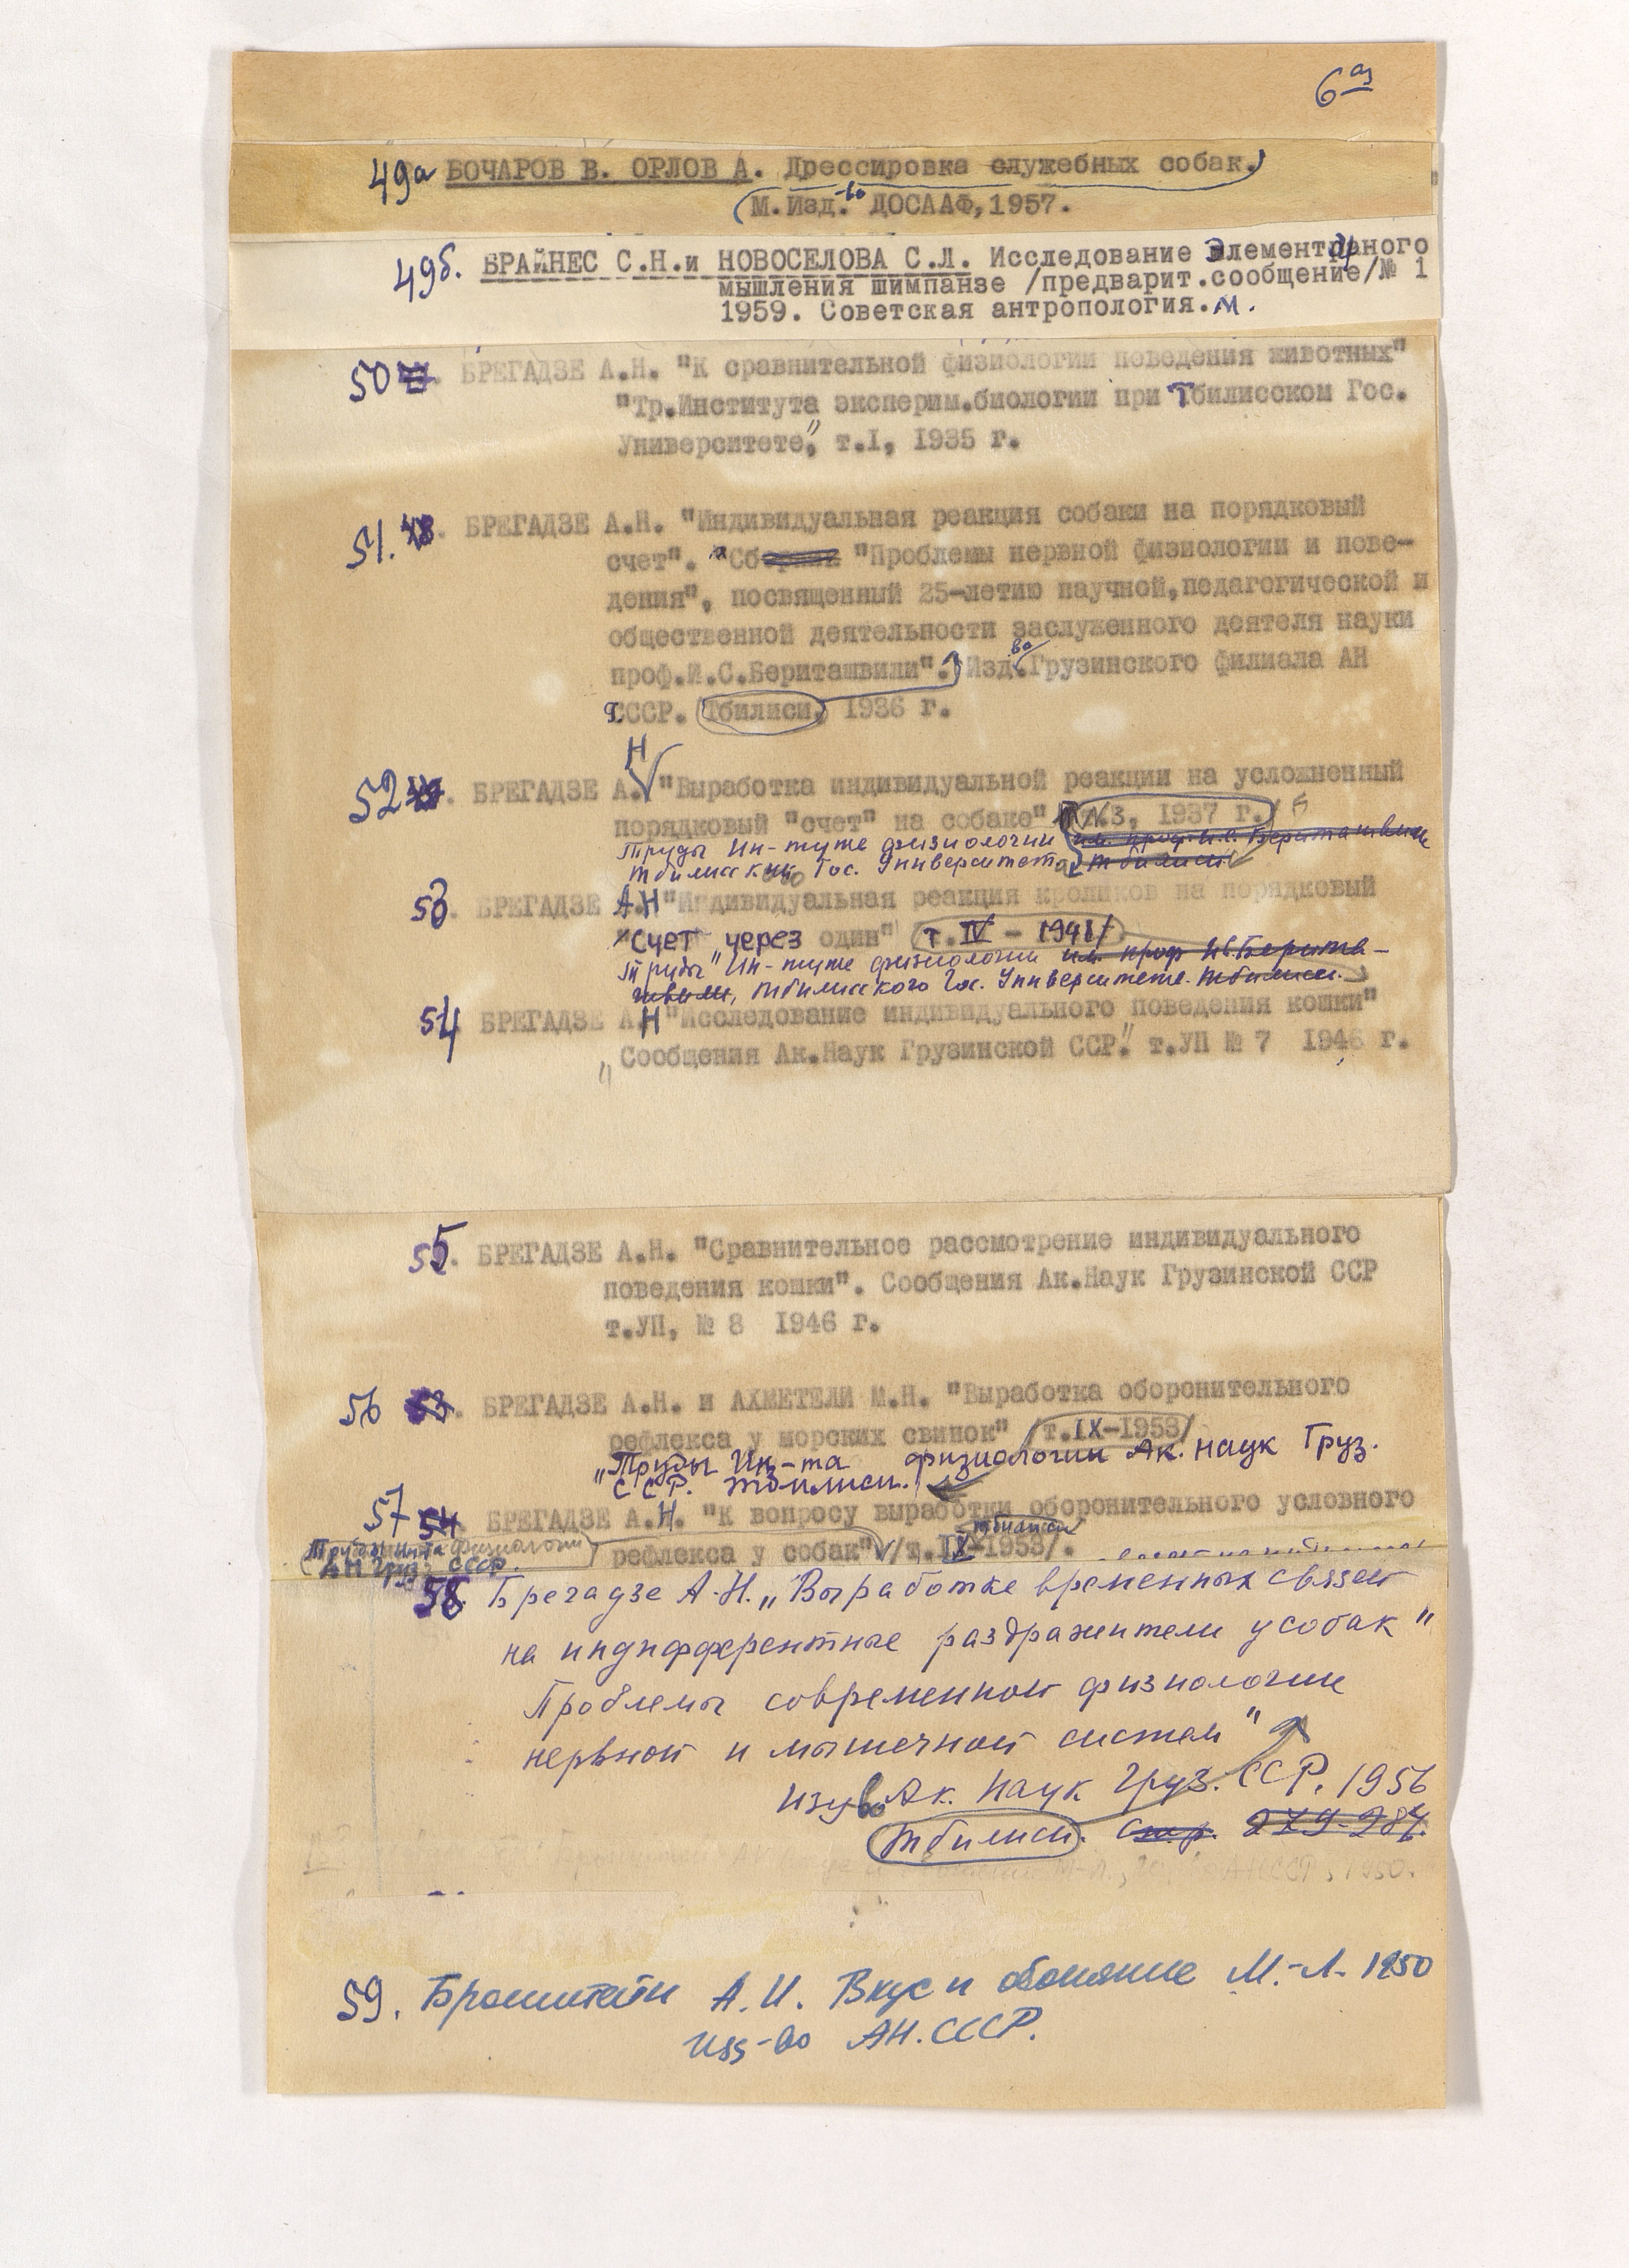 6а)
49а БОЧАРОВ В. ОРЛОВ А. Дрессировка служебных собак.
М.Изд.-во ДОСААФ,1957.
49б. БРАЙНЕС С.Н.и НОВОСЕЛОВА С.Л. Исследование Элементарного
мышления шимпанзе /предварит.сообщение/№ 1
1959. Советская антропология.М.
50 БРЕГАДЗЕ А.Н. "К сравнительной физиологии поведения животных"
"Тр.Института эксперим.биологии при Тбилисском Гос.
Университете", т.I, 1935 г.
51. 48. БРЕГАДЗЕ А.Н. "Индивидуальная реакция собаки на порядковый
счет". "Сборник "Проблемы нервной физиологии и пове-
дения", посвященный 25-летию научной,педагогической и
общественной деятельности заслуженного деятеля науки
проф.И.С.Бериташвили". Изд.во Грузинского филиала АН
СССР. Тбилиси, 1936 г.
Н
52 49. БРЕГАДЗЕ А. "Выработка индивидуальной реакции на усложненный
порядковый "счет" на собаке" /т.3, 1937 г./
Труды Ин-туте физиологии им. проф. И.С. Бериташвили
Тбилисского Гос. Университета Тбилиси.
53. БРЕГАДЗЕ А.Н "Индивидуальная реакция кроликов на порядковый
"Счет "через один" /т. IV - 1941/
Труды" Ин-туте физиологии им. проф И.С. Берита-
швили, Тбилисского Гос. Университете. Тбилиси.
54 БРЕГАДЗЕ А.Н "Исследование индивидуального поведения кошки"
"Сообщения Ак.Наук Грузинской ССР." т.УП № 7 1946 г.
55. БРЕГАДЗЕ А.Н. "Сравнительное рассмотрение индивидуального
поведения кошки". Сообщения Ак.Наук Грузинской ССР
т.УП, № 8 1946 г.
56 53. БРЕГАДЗЕ А.Н. и АХМЕТЕЛИ М.Н. "Выработка оборонительного
рефлекса у морских свинок" /т.IX-1953/
"Труды Ин-та физиологии Ак. наук Груз.
ССР. Тбилиси.
57 54. БРЕГАДЗЕ А.Н. "К вопросу выработки оборонительного условного
Тбилиси
рефлекса у собак" /т.IX-1953/.
Труды ин-та физиологии
АН Груз. СССР.
58. Брегадзе А.Н. "Выработке временных связей
на индифферентные раздражители у собак"
Проблемы современной физиологии
нервной и мышечной систем"
Изд-во Ак. Наук Груз. ССР. 1956
Тбилиси. Стр. 279-287.
59. Бронштейн А.И. Вкус и обоняние М.-Л. 1950
Изд-во АН.СССР.